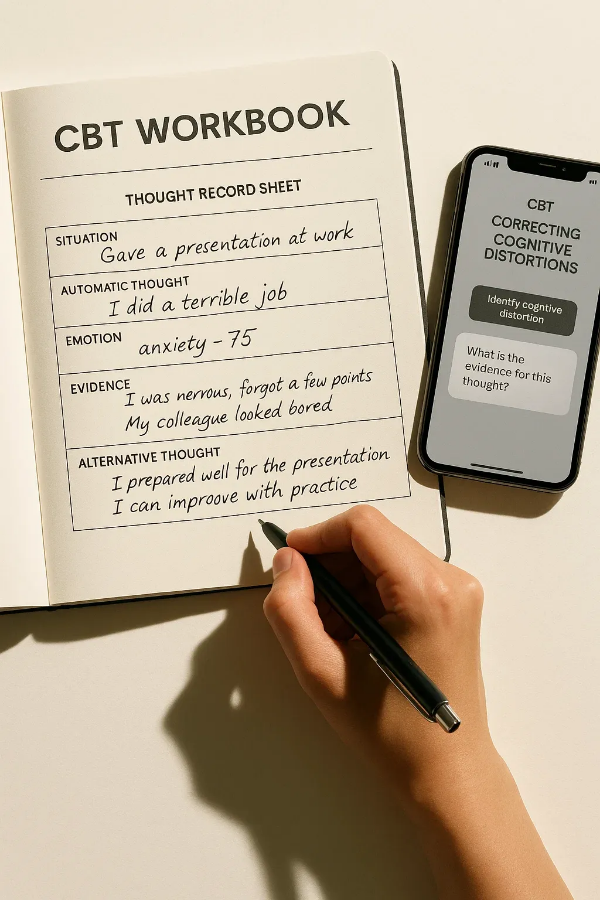 CBT WORKBOOK
THOUGHT RECORD SHEET
SITUATION
Gave a presentation at work
AUTOMATIC THOUGHT
I did a terrible job
EMOTION
anxiety – 75
EVIDENCE
I was nervous, forgot a few points
My colleague looked bored
ALTERNATIVE THOUGHT
I prepared well for the presentation
I can improove with practice
CBT
CORRECTING
COGNITIVE
DISTORTIONS
Identfy cogntive
distortion
What is the
evidence for this
thought?